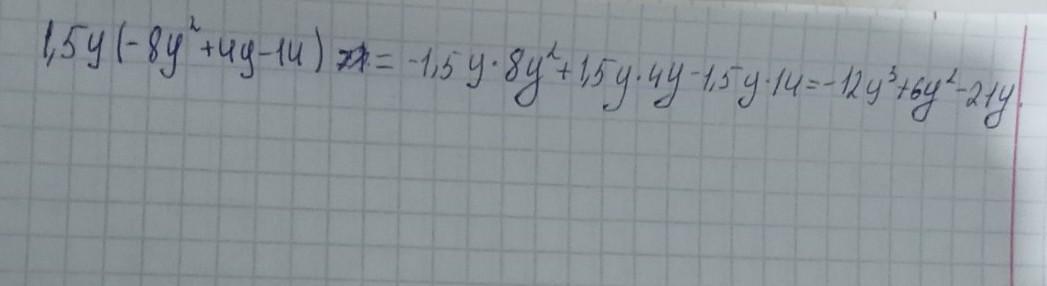 1,5y(-8y²+4y-14) = -1,5y·8y²+1,5y·4y-1,5y·14=-12y³+6y²-21y